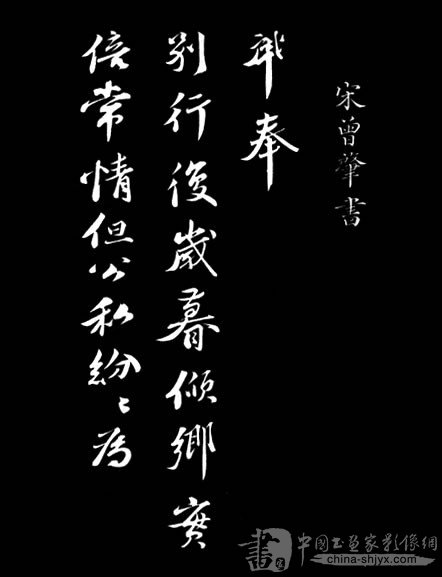 宋曾肇書
奉
別行復歲暮傾鄉實
倍常情但公私紛〻為
書
中國书画家影像網
china-shjyx.com